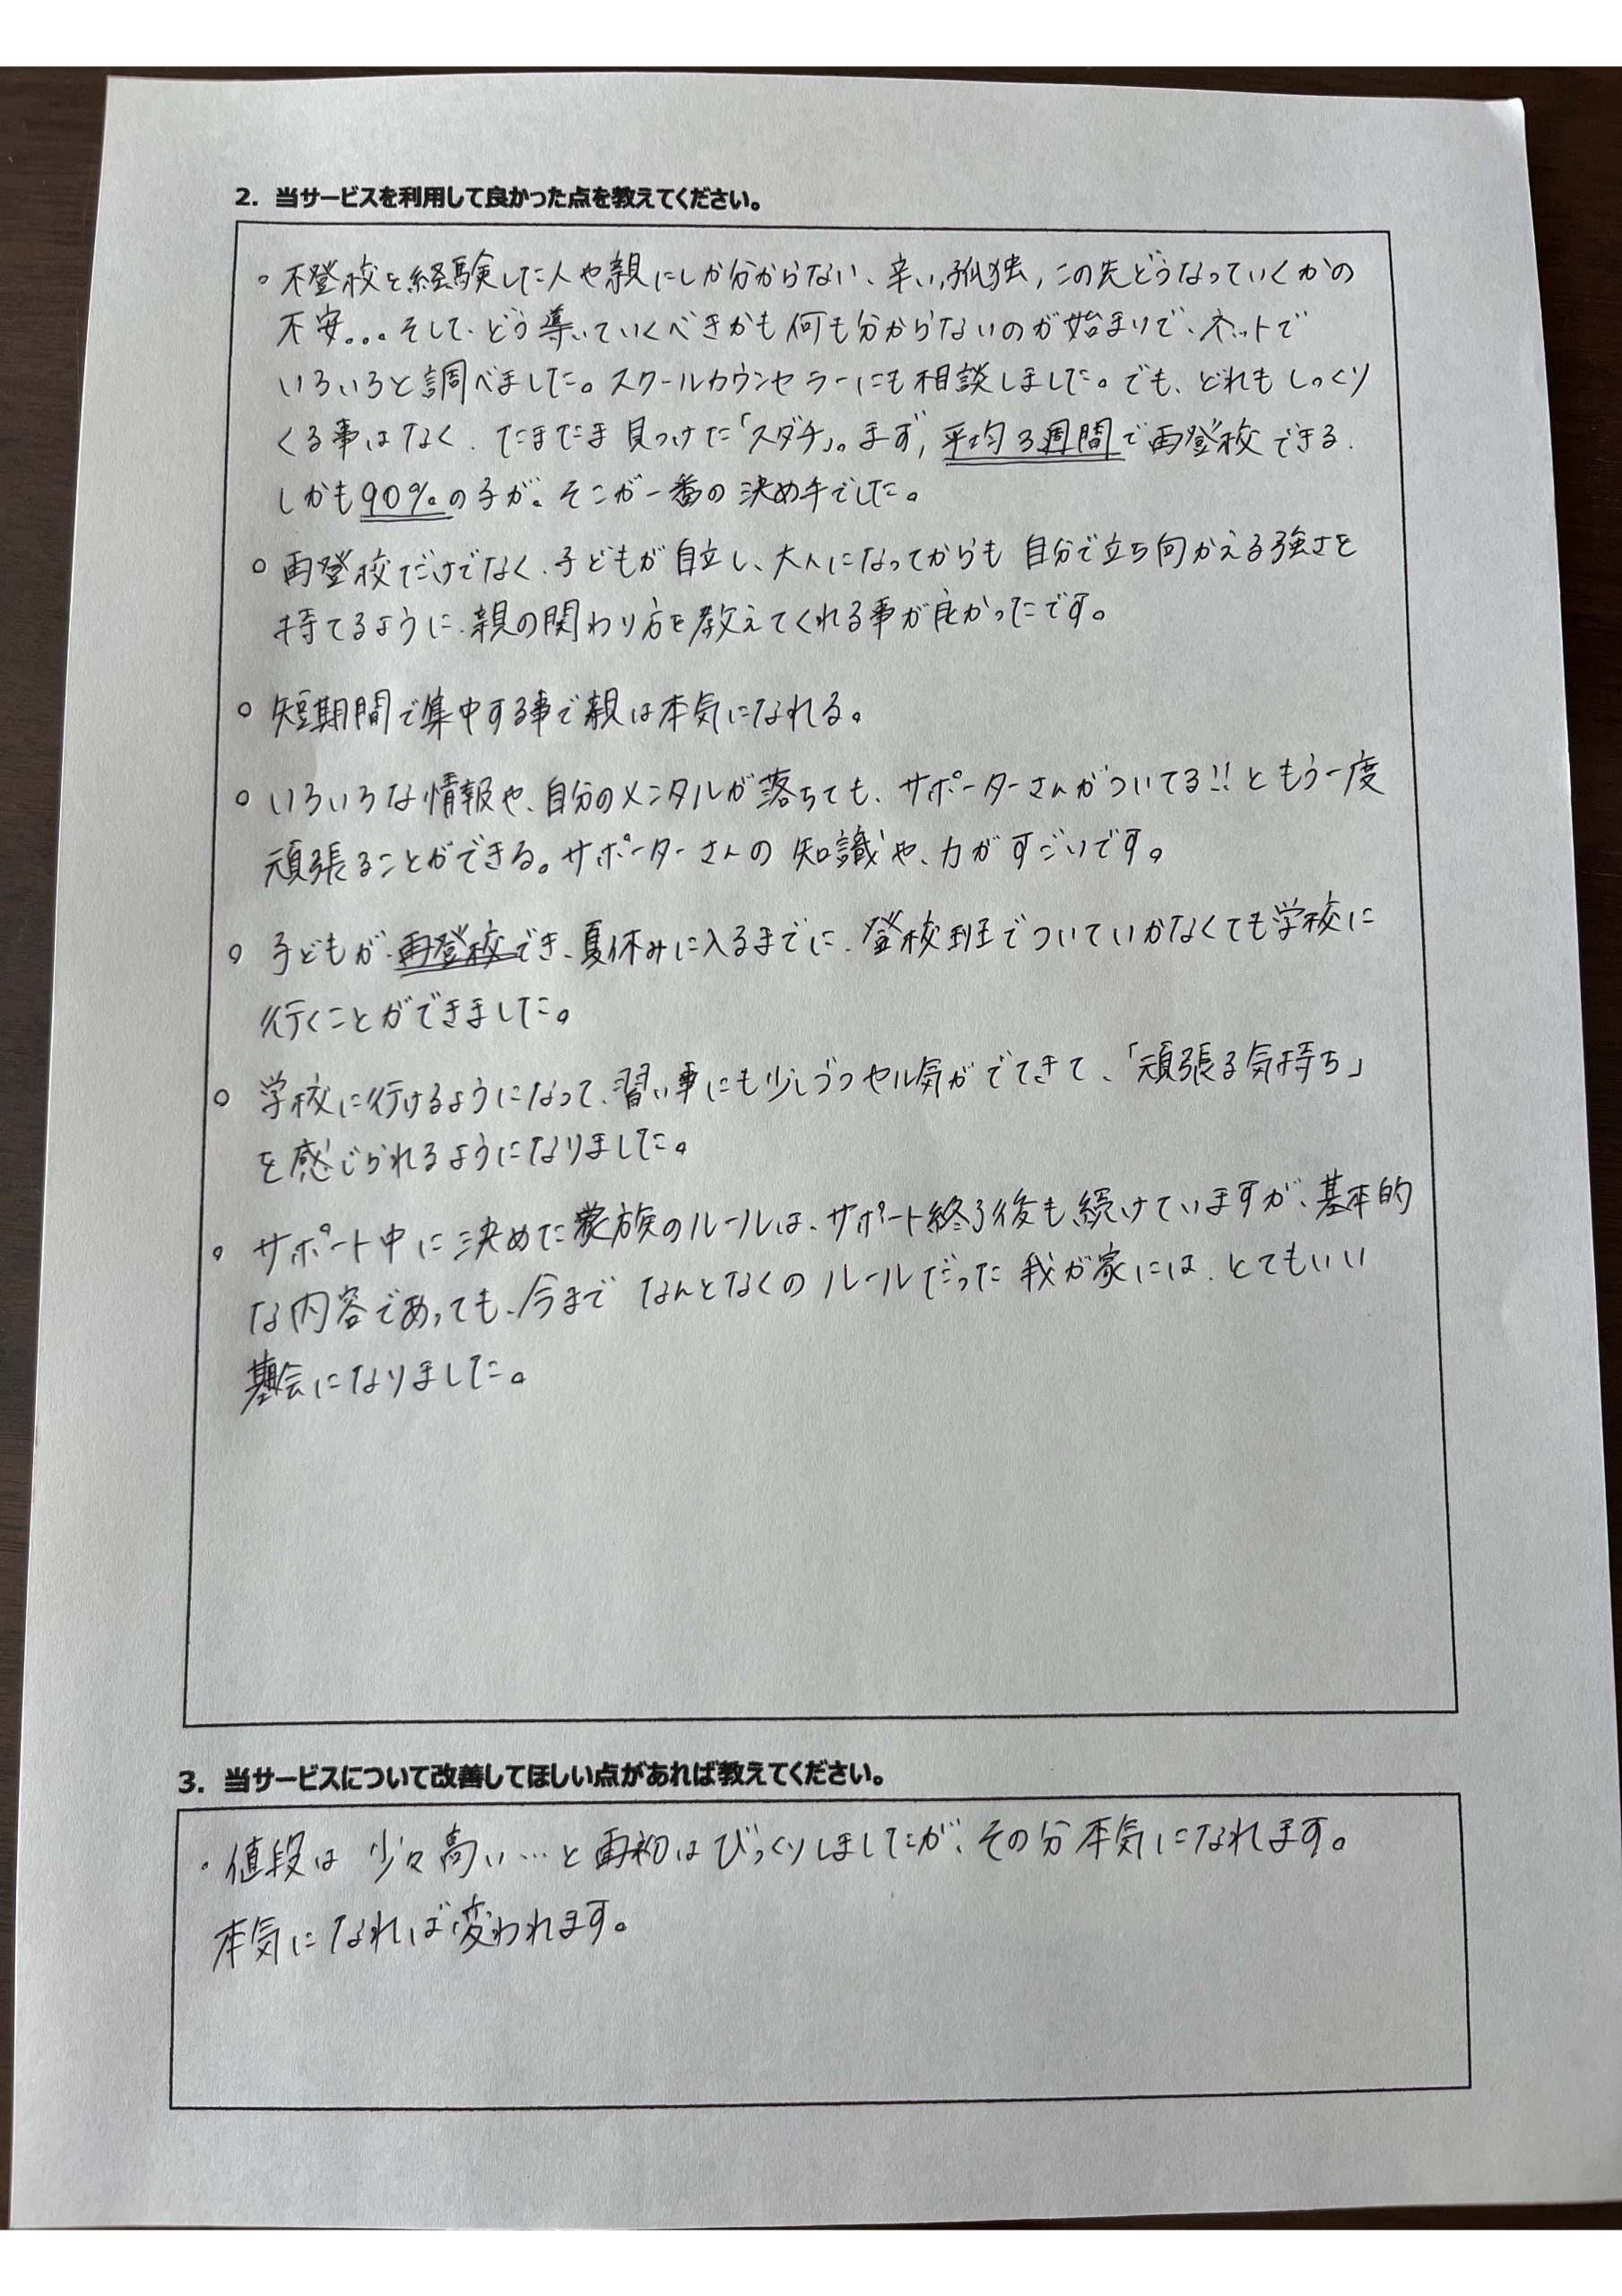 2. 当サービスを利用して良かった点を教えてください。
。不登校を経験した人や親にしか分からない、辛い,孤独,この先どうなっていくかの
不安...そして、どう導いていくべきかも何も分からないのが始まりで、ネットで
いろいろと調べました。スクールカウンセラーにも相談しました。でも、どれもしっくり
くる事はなく、たまたま見つけた「スダチ」。まず,平均3週間で再登校できる、
しかも90%の子が。そこが一番の決め手でした。
○ 再登校だけでなく、子どもが自立し、大人になってからも自分で立ち向かえる強さを
持てるように、親の関わり方を教えてくれる事が良かったです。
○ 短期間で集中する事で親は本気になれる。
○ いろいろな情報や、自分のメンタルが落ちても、サポーターさんがついてる!!ともう一度
頑張ることができる。サポーターさんの知識や、力がすごいです。
○ 子どもが、再登校でき、夏休みに入るまでに、登校班でついていかなくても学校に
行くことができました。
○ 学校に行けるようになって、習い事にも少しづつヤル気がでてきて、「頑張る気持ち」
を感じられるようになりました。
○ サポート中に決めた家族のルールは、サポート終了後も続けていますが、基本的
な内容であっても、今までなんとなくのルールだった我が家には、とてもいい
会になりました。
3. 当サービスについて改善してほしい点があれば教えてください。
・値段は少々高い…と初はびっくりしましたが、その分本気になれます。
本気になれば変われます。